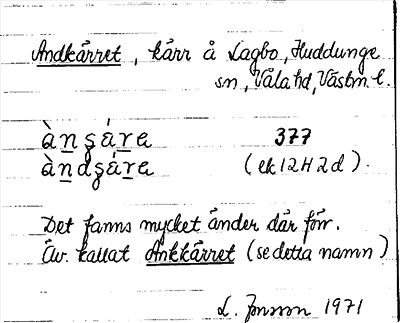 Andkärret, kärr å Lagbo, Huddunge
sn, Våla hd, Västm. l.
àṉʂáṟa 377
àṉdʂáṟa (ek 12H2d).
Det fanns mycket änder där förr.
Äv. kallat Ankkärret (se detta namn)
L. Jonson 1971